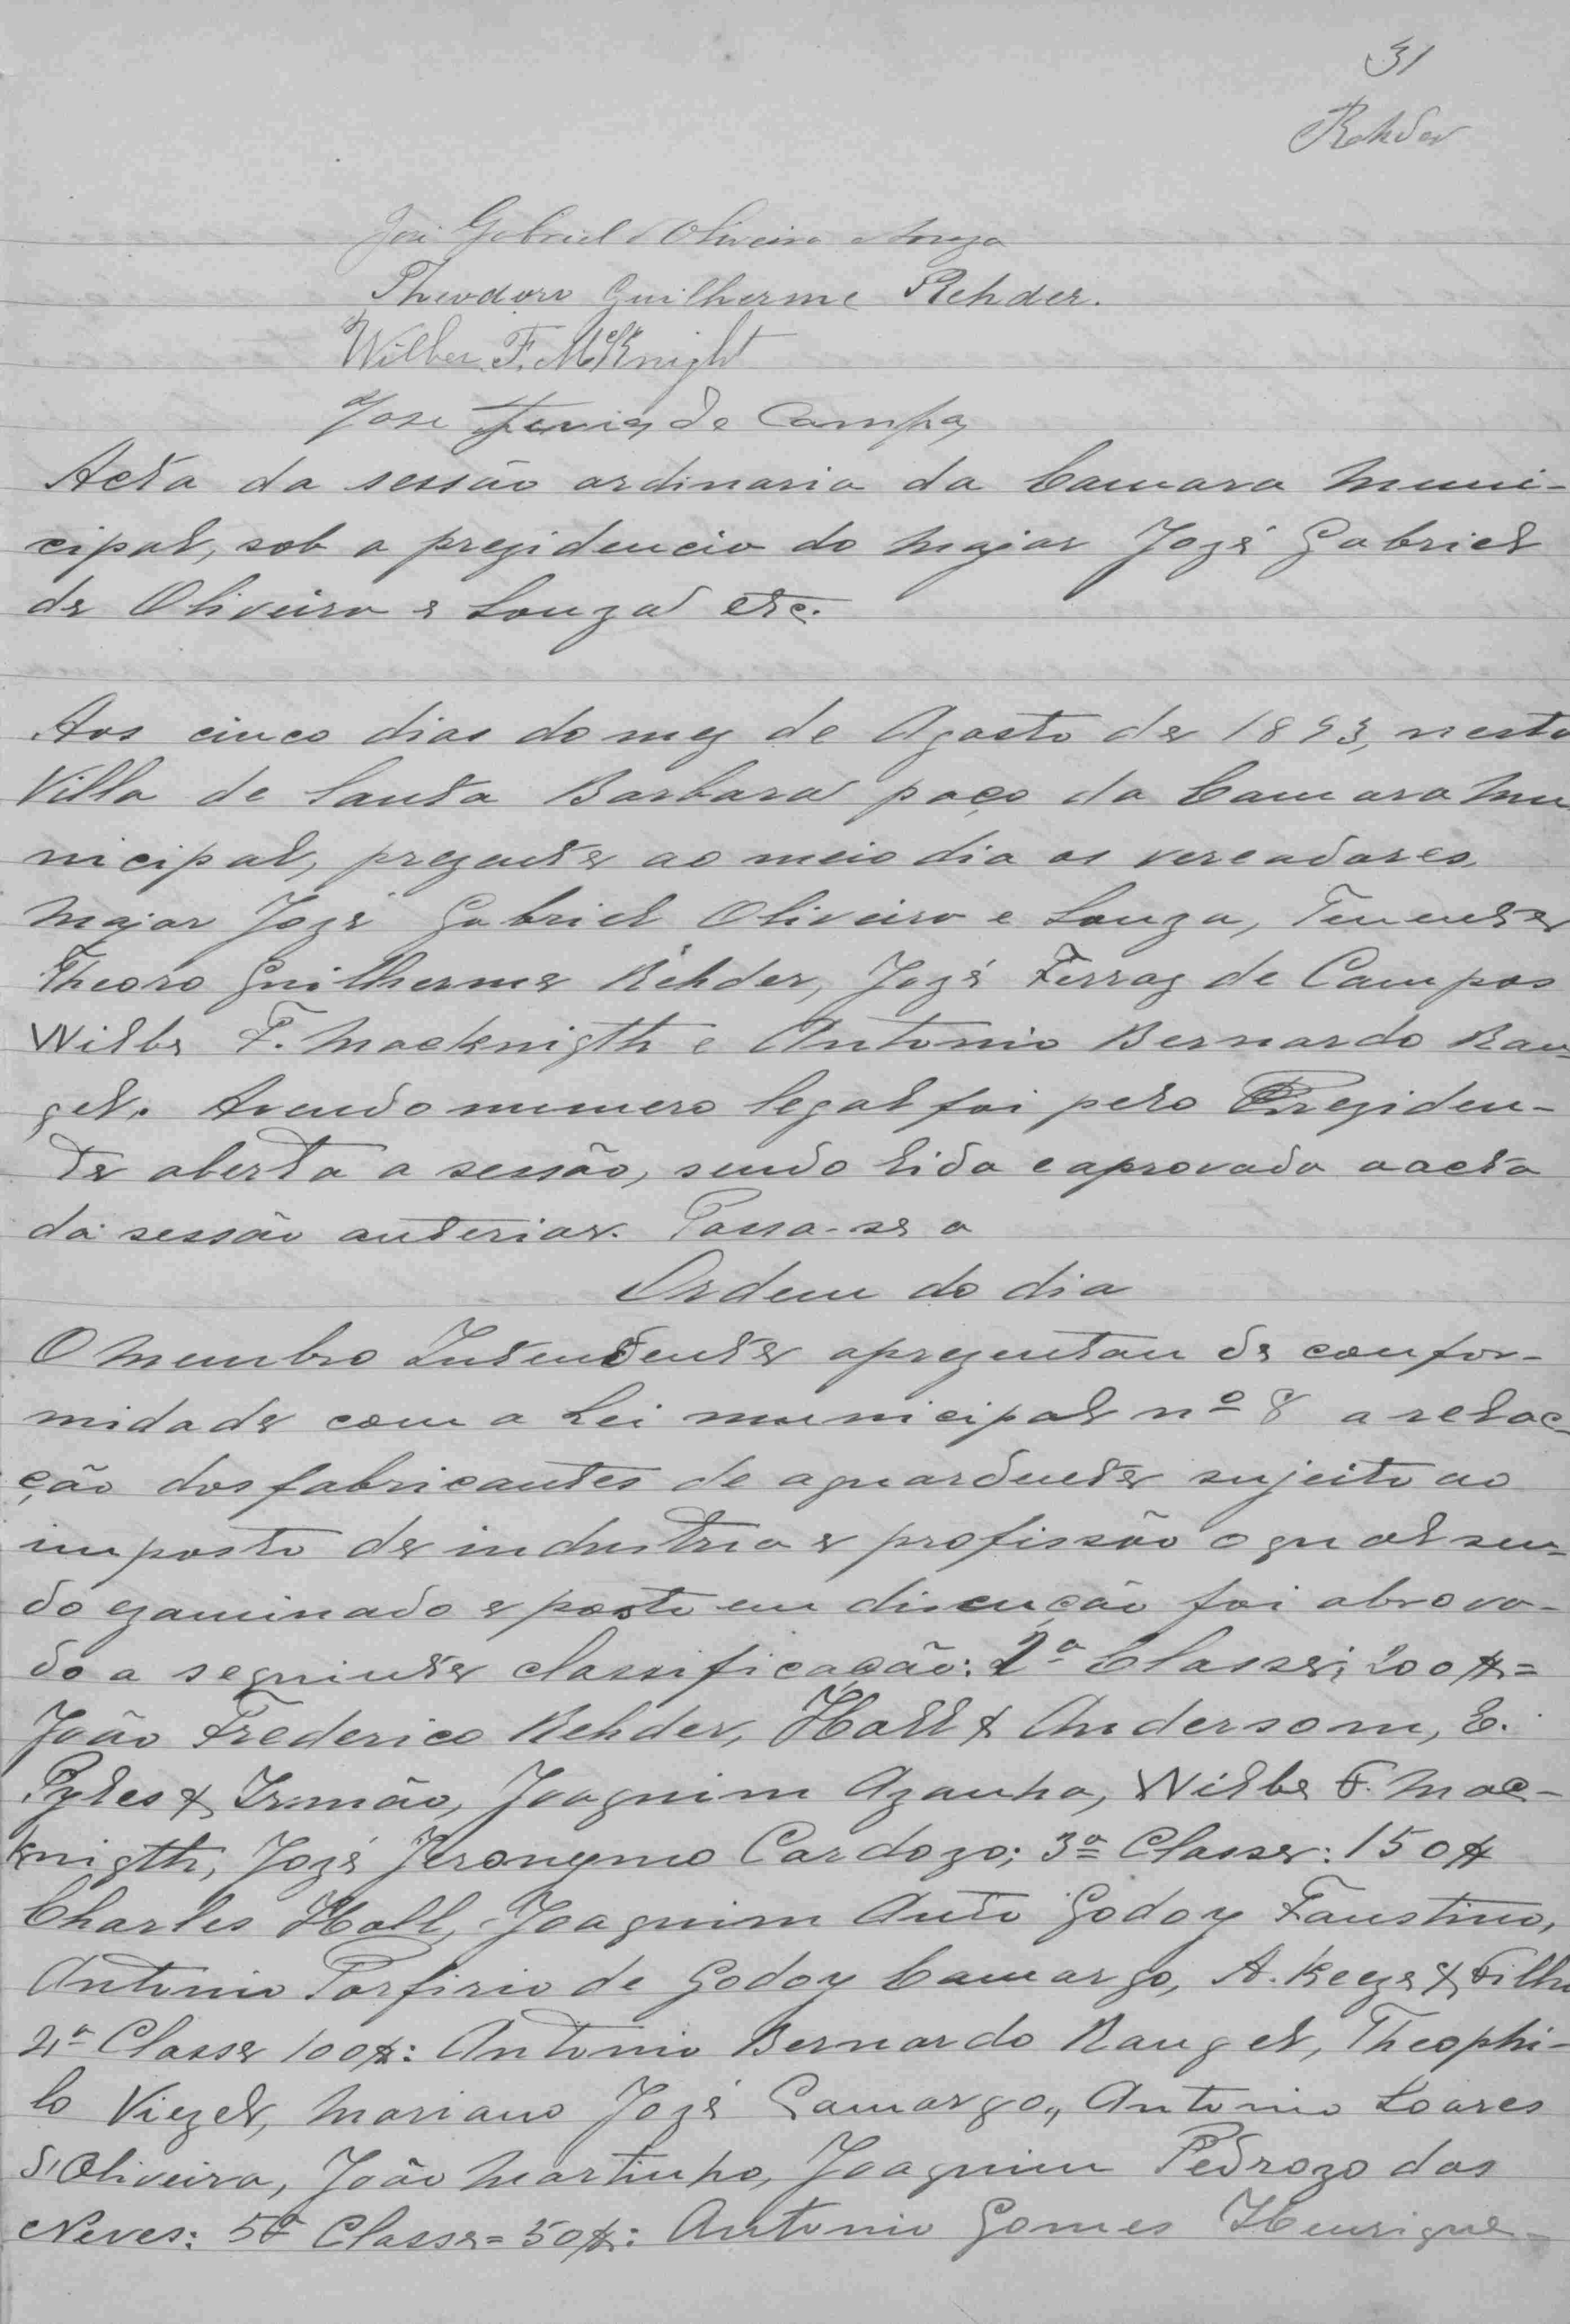 31
Rehder
José Gabriel d'Oliveira e Souza
Theodoro Guilherme Rehder.
Wilber F. McKnight
Jose Ferraz de Campos
Acta da sessão ordinaria da Camara Muni-
cipal, sob a prezidencia do Major Jozé Gabriel
de Oliveira e Souza etc.
Aos cinco dias do mez de Agosto de 1893, nesta
Villa de Santa Barbara paço da Camara Mu
nicipal, prezente ao meio dia os vereadores
Major Jozé Gabriel Oliveira e Souza, Tenente
Theoro Guilherme Rehder, Jozé Ferraz de Campos
Wilbe F. Macknigth e Antonio Bernardo Ran-
gel. Avendo numero legal foi pelo Preziden-
te aberta a sessão, sendo lida e aprovada a acta
da sessão anterior. Passa-se a
Ordem do dia
O Membro Intendente aprezentou de confor-
midade com a Lei municipal nº 8 a relac-
ção dos fabricantes de aguardente sujeito ao
imposto de industria e profissão o qual sen-
do ezaminado e posto em discução foi abrova-
do a seguinte classificação: 2ª Classe; 200$=
João Frederico Rehder, Hall & Andersom, E.
Pyles & Irmão, Joaquim Azanha, Wilbe F. Mac-
knigth, Jozé Jeronymo Cardozo; 3ª Classe: 150$
Charles Hall, Joaquim Antº Godoy Faustino,
Antonio Porfirio de Godoy Camargo, A. Keeze & Filho
4ª Classe 100$: Antonio Bernardo Rangel, Theophi-
lo Viezel, Mariano Jozé Camargo, Antonio Soares
d'Oliveira, João Martinho, Joaquim Pedrozo das
Neves: 5ª Classe= 50$: Antonio Gomes Henrique-